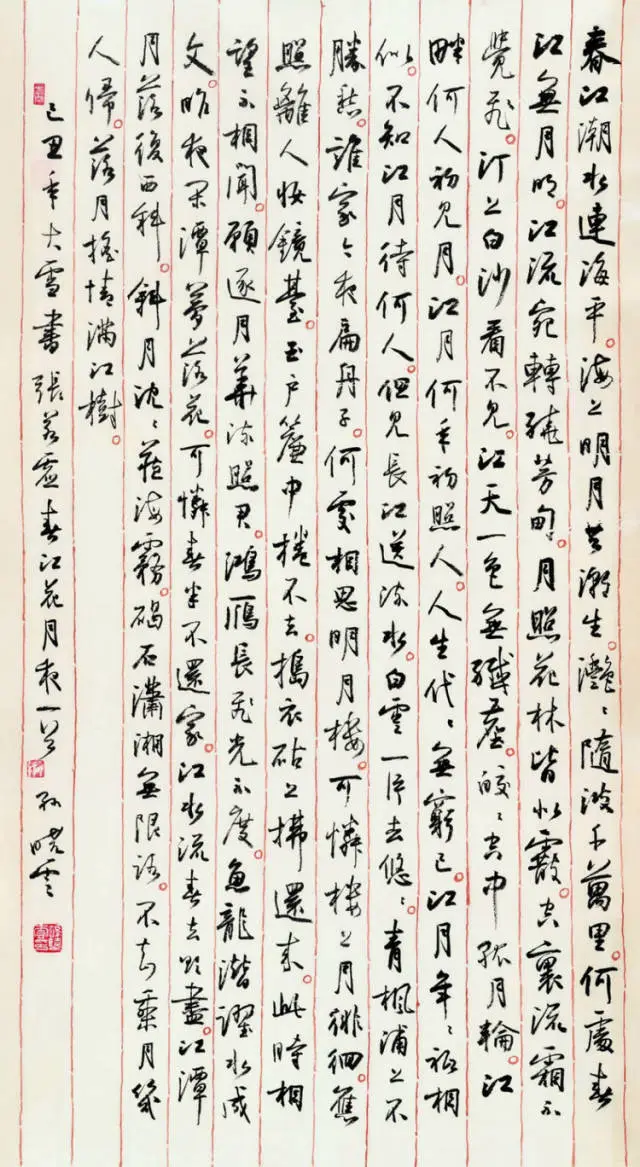 春江潮水連海平。海上明月共潮生。灧〻隨波千萬里。何處春
江無月明。江流宛轉繞芳甸。月照花林皆似霰。空裏流霜不
覺飛。汀上白沙看不見。江天一色無纖塵。皎〻空中孤月輪。江
畔何人初見月。江月何年初照人。人生代〻無窮已。江月年〻祗相
似。不知江月待何人。但見長江送流水。白雲一片去悠〻。青楓浦上不
勝愁。誰家今夜扁舟子。何處相思明月樓。可憐樓上月徘徊。應
照離人妝鏡臺。玉戶簾中捲不去。搗衣砧上拂還來。此時相
望不相聞。願逐月華流照君。鴻雁長飛光不度。魚龍潛躍水成
文。昨夜閑潭夢落花。可憐春半不還家。江水流春去欲盡。江潭
月落復西斜。斜月沈〻藏海霧。碣石瀟湘無限路。不知乘月幾
人歸。落月搖情滿江樹。
己丑年大雪書張若虛春江花月夜一首 孫曉雲